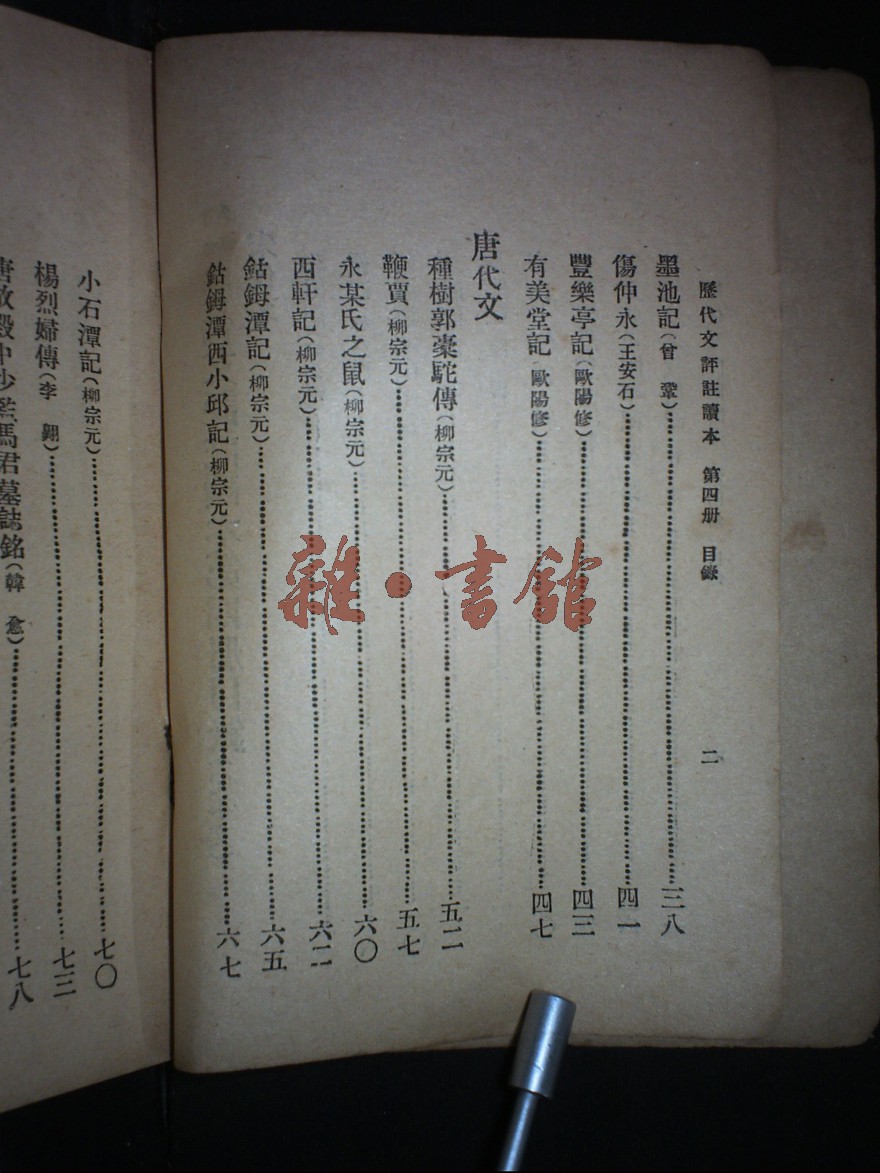 歷代文評註讀本 第四册 目錄 二
墨池記(曾 鞏)三八
傷仲永(王安石)四一
豐樂亭記(歐陽修)四三
有美堂記(歐陽修)四七
唐代文
種樹郭橐駝傳(柳宗元)五二
鞭賈(柳宗元)五七
永某氏之鼠(柳宗元)六〇
西軒記(柳宗元)六二
鈷鉧潭記(柳宗元)六五
鈷鉧潭西小邱記(柳宗元)六七
小石潭記(柳宗元)七〇
楊烈婦傳(李 翺)七三
唐故殿中少監馬君墓誌銘(韓 愈)七八
雜·書館